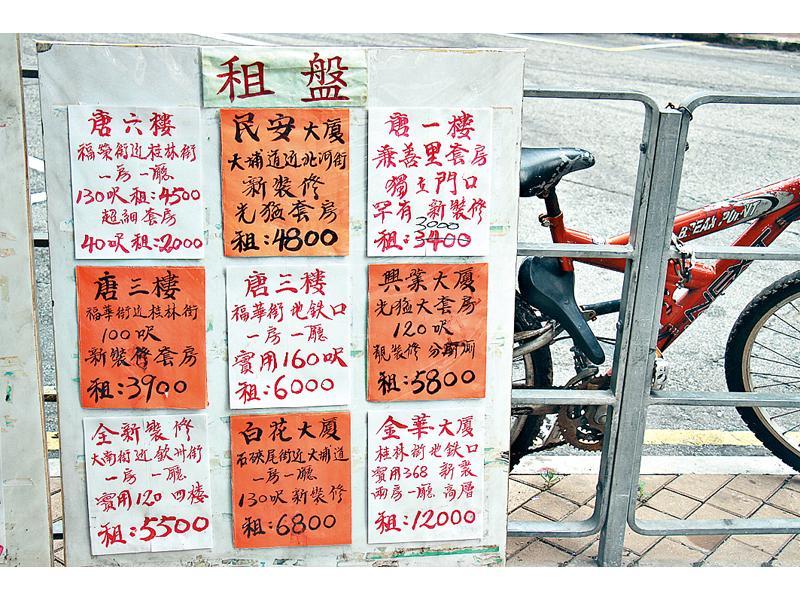 租盤
唐六樓
福榮街近桂林街
一房一廳
130呎租:4500
超細套房
40呎租:2000
民安大廈
大埔道近北河街
新裝修
光猛套房
租:4800
唐一樓
兼善里套房
獨立門口
罕有新裝修
3000
租:3400
唐三樓
福華街近桂林街
100呎
新裝修套房
租:3900
唐三樓
福華街地鉄口
一房一廳
實用160呎
租:6000
興業大廈
光猛大套房
120呎
靚裝修 分廚厠
租:5800
全新裝修
大南街近欽州街
一房一廳
實用120 四樓
租:5500
白花大廈
石硤尾街近大埔道
一房一廳
130呎新裝修
租:6800
金華大廈
桂林街地鉄口
實用368 新裝
兩房一廳 高層
租:12000
BREAK POINT